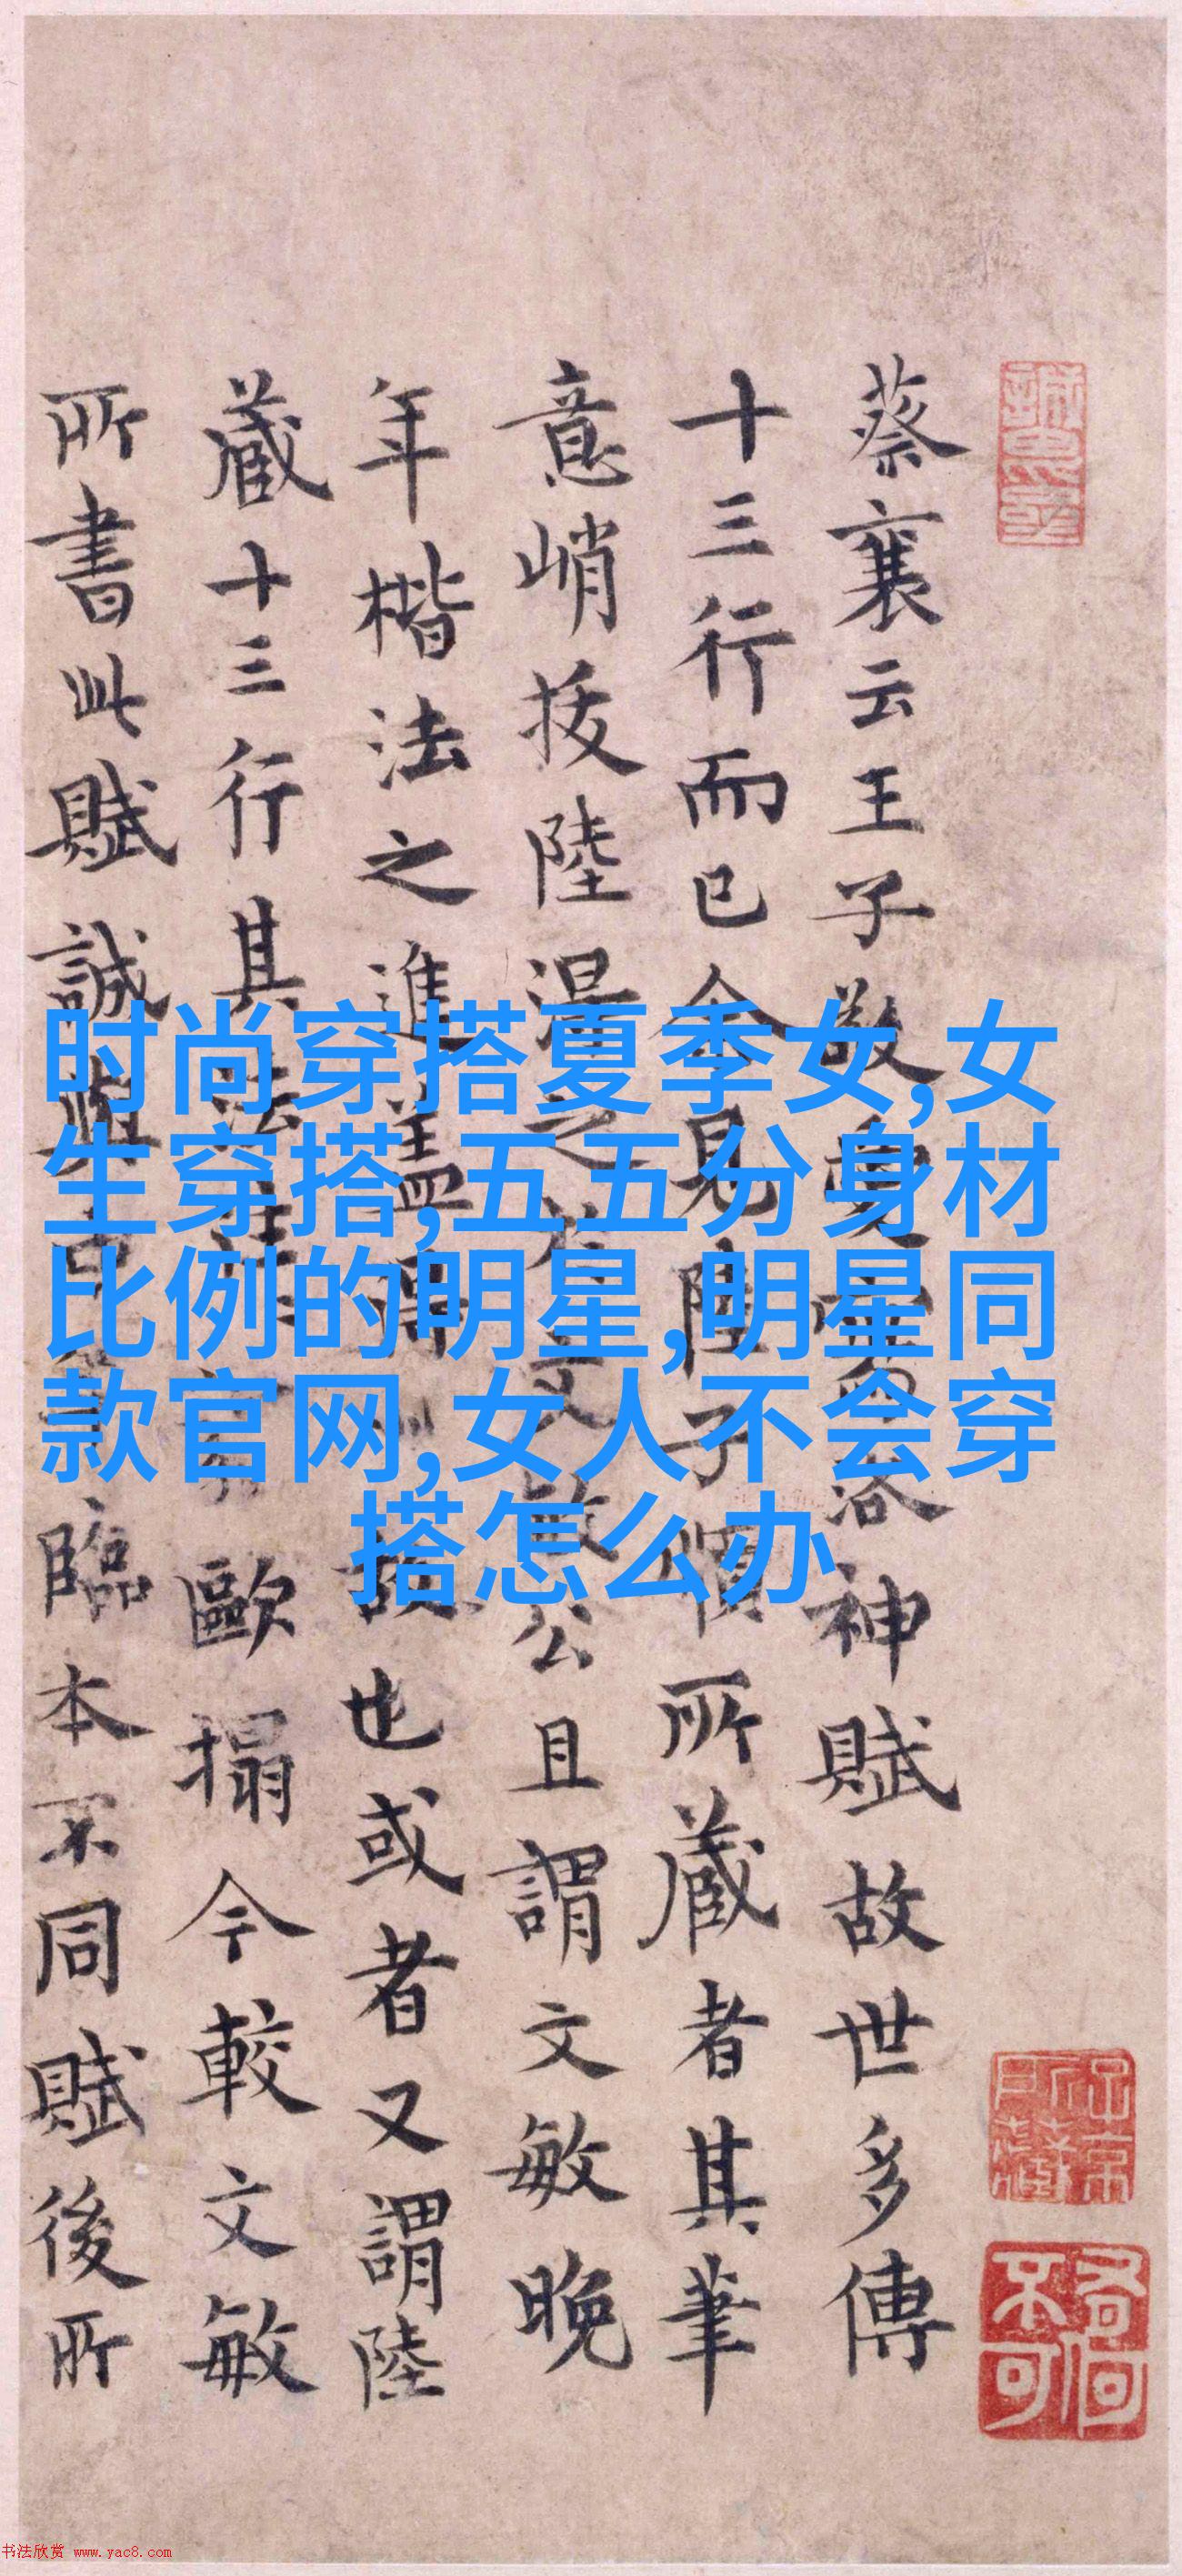 蔡襄云王子敬愛洛神賦故世多傳
十三行而已今見陸子順所藏者其筆
意峭拔陸湜之文敏公且謂文敏晚
年楷法之進盖得故也或者又謂陸
藏十三行其法歐搨今較文敏
所書此賦誠臨本不同賦後所
时尚穿搭夏季女,女
生穿搭,五五分身材
比例的明星,明星同
款官网,女人不会穿
搭怎么办
书法欣赏 www.yac8.com